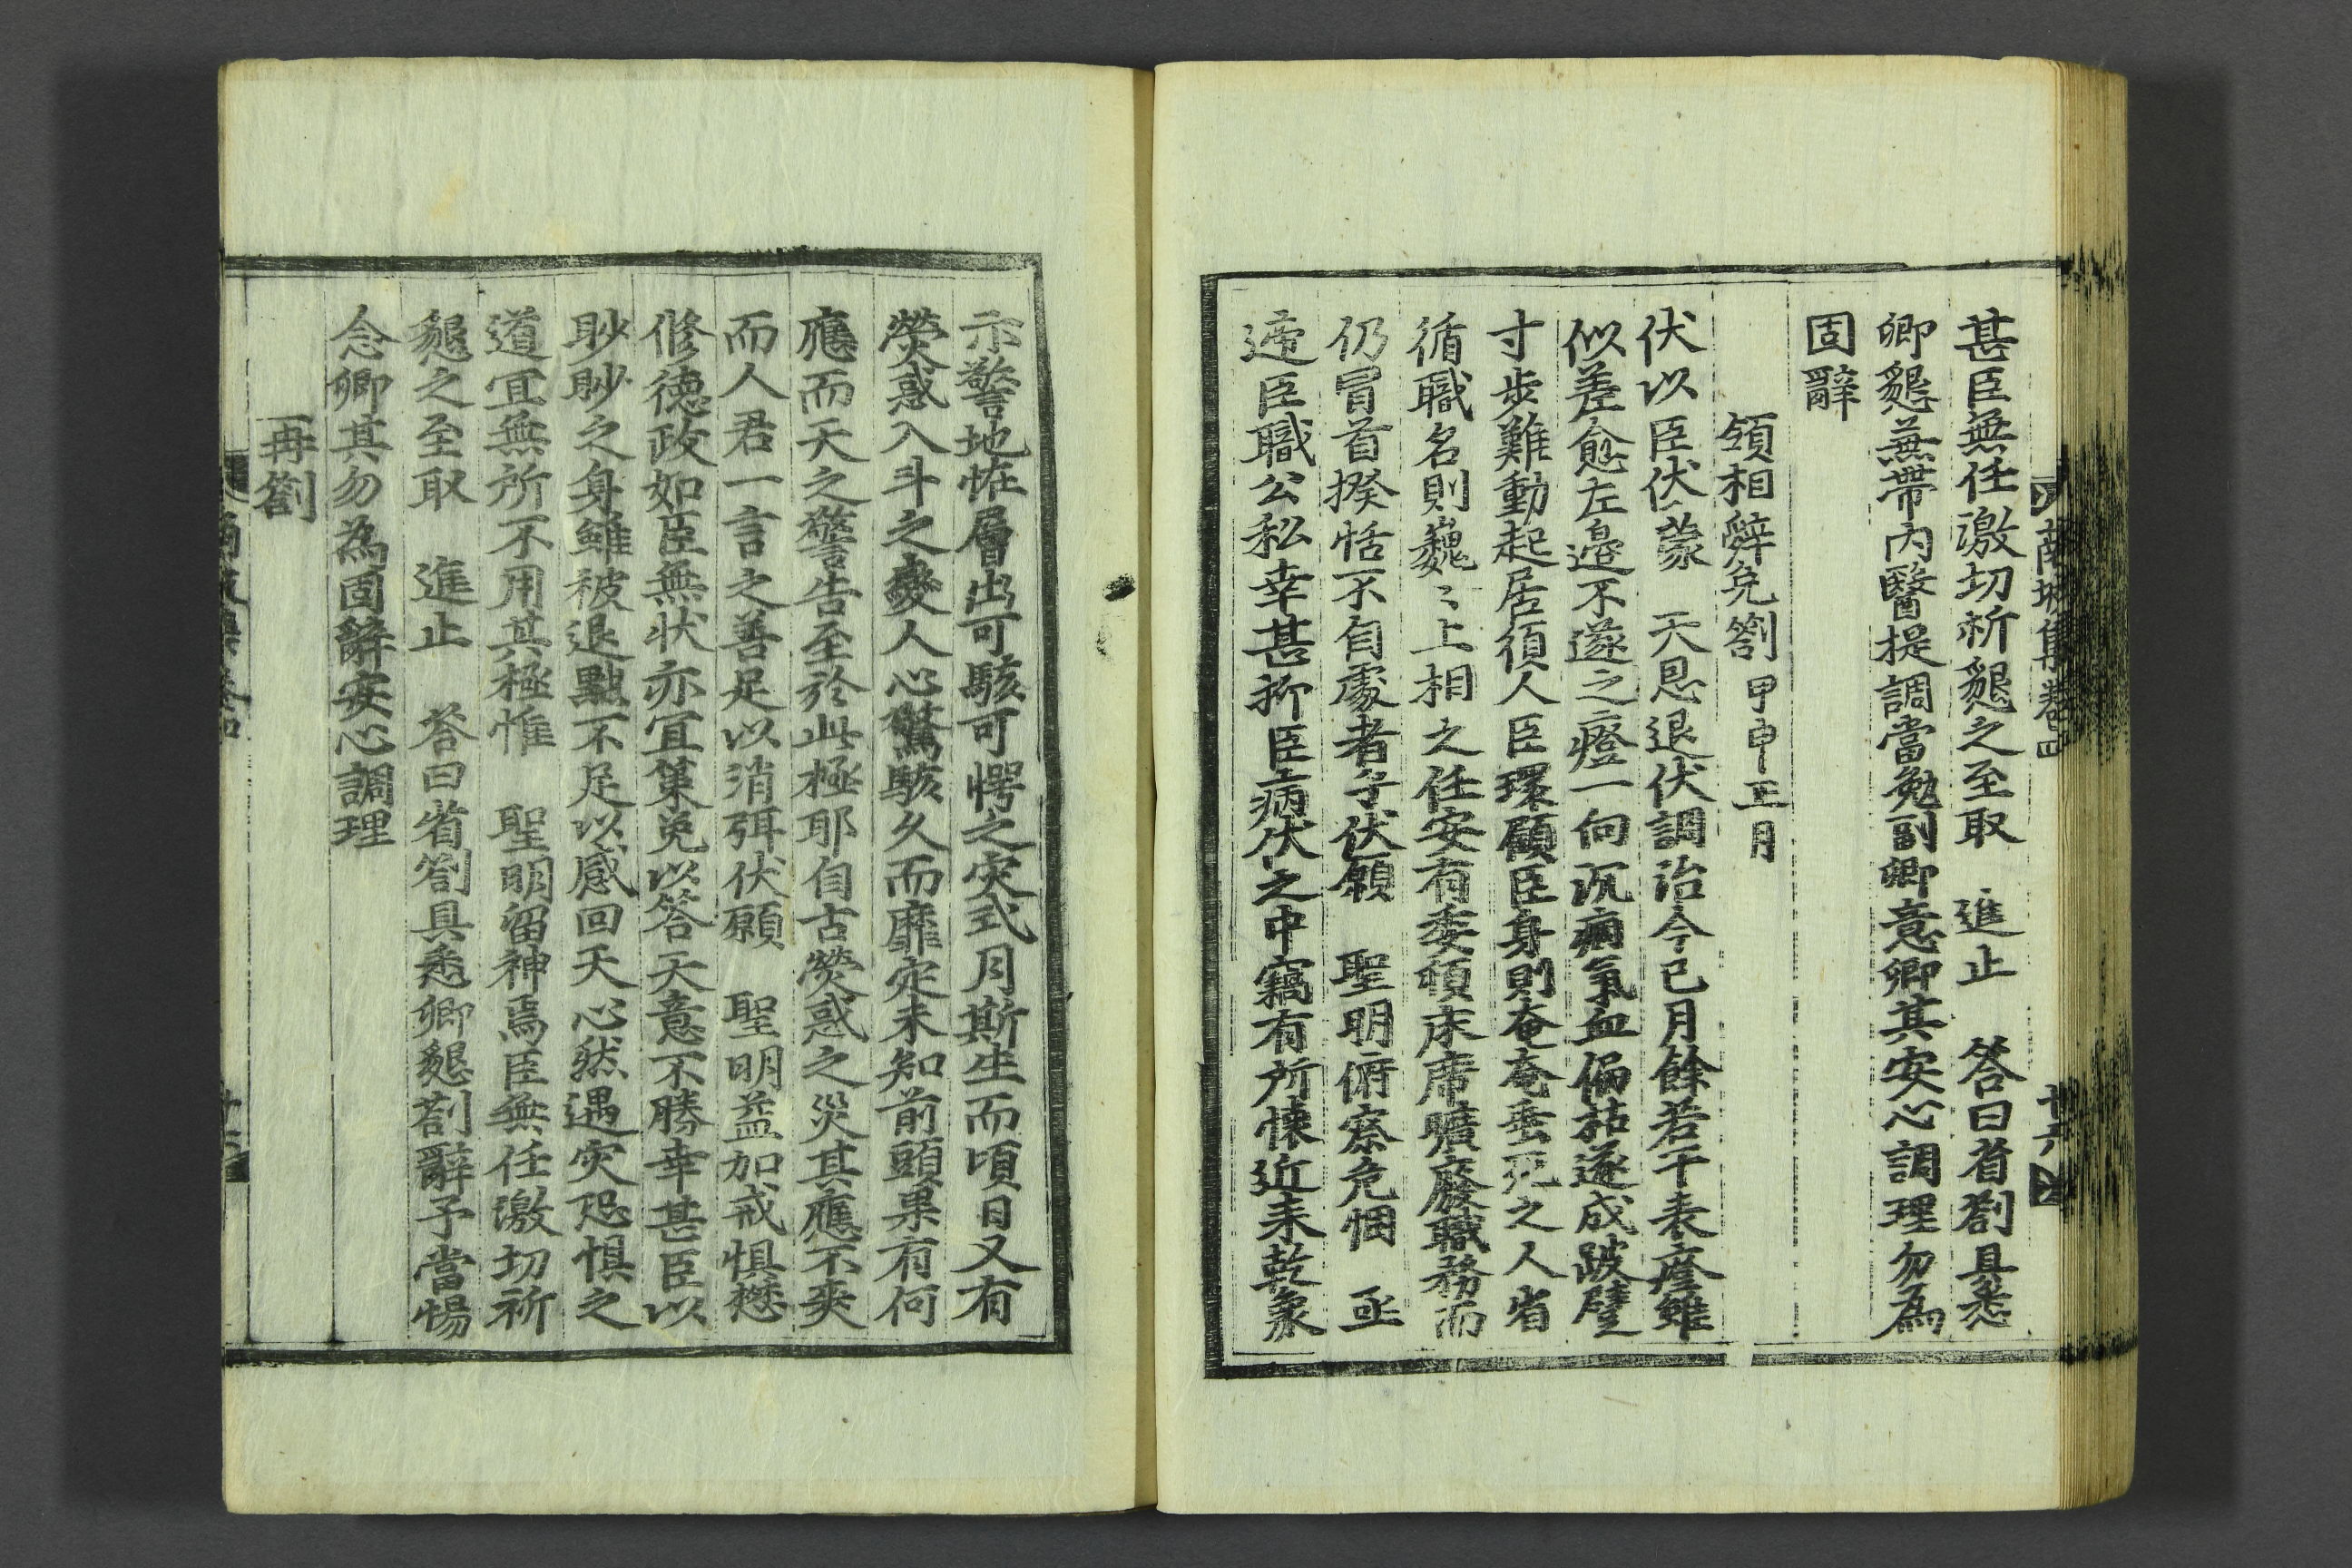 甚臣無任激切祈懇之至取 進止 答曰省劄具悉
卿懇兼帶內醫提調當勉副卿意卿其安心調理勿爲
固辭
領相辭免劄 甲申正月
伏以臣伏蒙 天恩退伏調治今已月餘若干表症雖
似差愈左邊不遂之證一向沉痼氣血偏枯遂成跛躄
寸步難動起居須人臣環顧臣身則奄奄垂死之人省
循職名則巍〻上相之任安有委頓床席曠廢職務而
仍冒首揆恬不自處者乎伏願 聖明俯察危悃 亟
遞臣職公私幸甚抑臣病伏之中竊有所懷近來乾象
示警地怪層出可駭可愕之灾式月斯生而頃日又有
熒惑入斗之變人心驚駭久而靡定未知前頭果有何
應而天之警告至於此極耶自古熒惑之災其應不爽
而人君一言之善足以消弭伏願 聖明益加戒懼懋
修德政如臣無狀亦宜策免以答天意不勝幸甚臣以
眇眇之身雖被退黜不足以感回天心然遇灾恐懼之
道宜無所不用其極惟 聖明留神焉臣無任激切祈
懇之至取 進止 答曰省劄具悉卿懇劄辭予當惕
念卿其勿為固辭安心調理
再劄
集卷四
十六